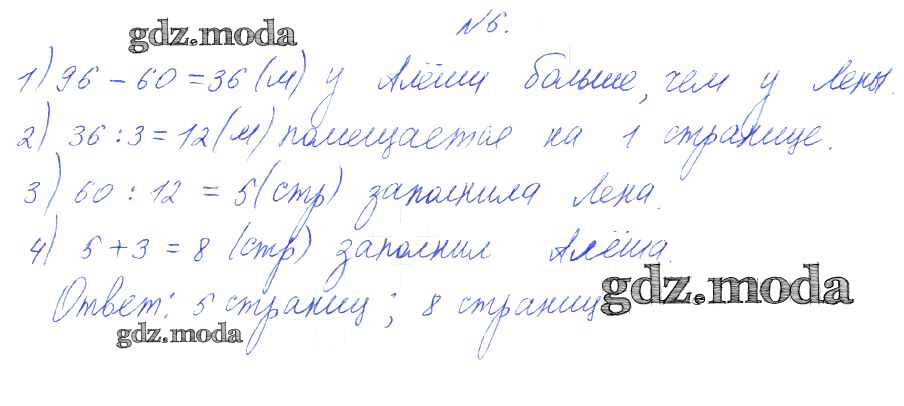 №6.
gdz.moda
1) 96 - 60 = 36 (м) у Алёши больше, чем у Лены.
2) 36 : 3 = 12 (м) помещается на 1 странице.
3) 60 : 12 = 5 (стр) заполнила Лена.
4) 5 + 3 = 8 (стр) заполнил Алёша.
gdz.moda
Ответ: 5 страниц; 8 страниц
gdz.moda